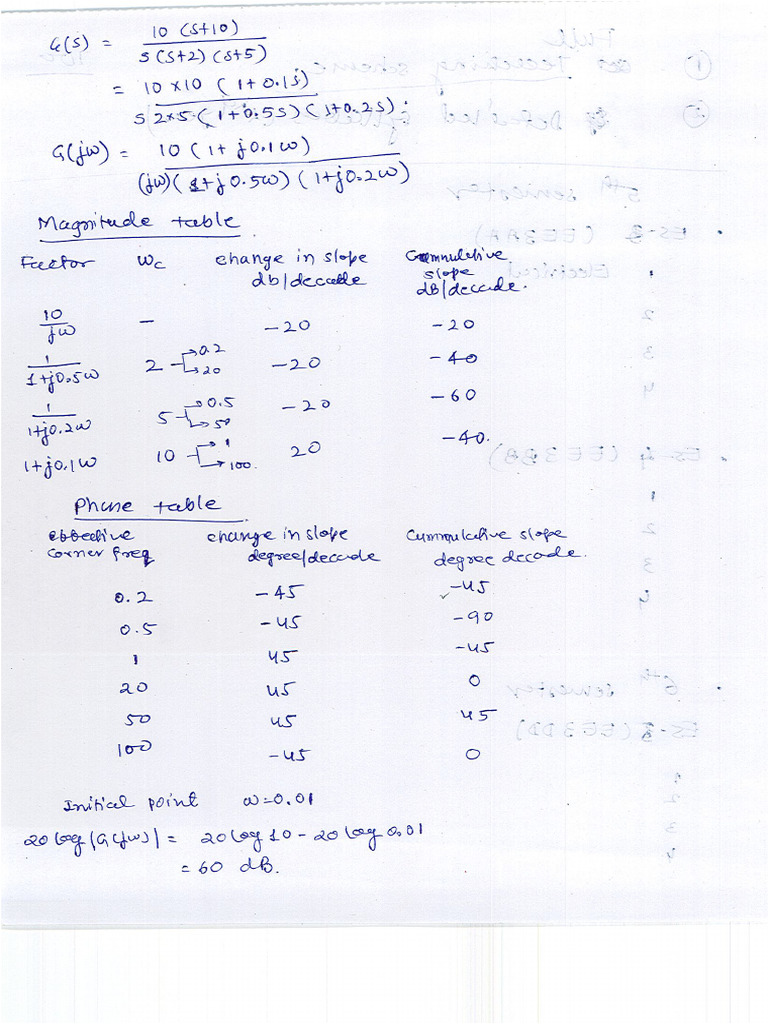 G(s) = 10 (s+10) / s(s+2)(s+5)
= 10×10 (1+0.1s) / s 2×5 (1+0.5s)(1+0.2s).
G(jω) = 10 (1+ j0.1ω) / (jω)(1+j0.5ω)(1+j0.2ω)
Magnitude table
Factor ωc change in slope db/decade Cummulative slope dB/decade.
10/jω — -20 -20
1/1+j0.5ω 2 →0.2 →20 -20 -40
1/1+j0.2ω 5 →0.5 →50 -20 -60
1+j0.1ω 10 →1 →100. 20 -40.
Phase table
effective corner freq change in slope degree/decade Cummulative slope degree decade.
0.2 -45 -45
0.5 -45 -90
1 45 -45
20 45 0
50 45 45
100 -45 0
Initial point ω=0.01
20 log |G(jω)| = 20 log 10 - 20 log 0.01
= 60 dB.